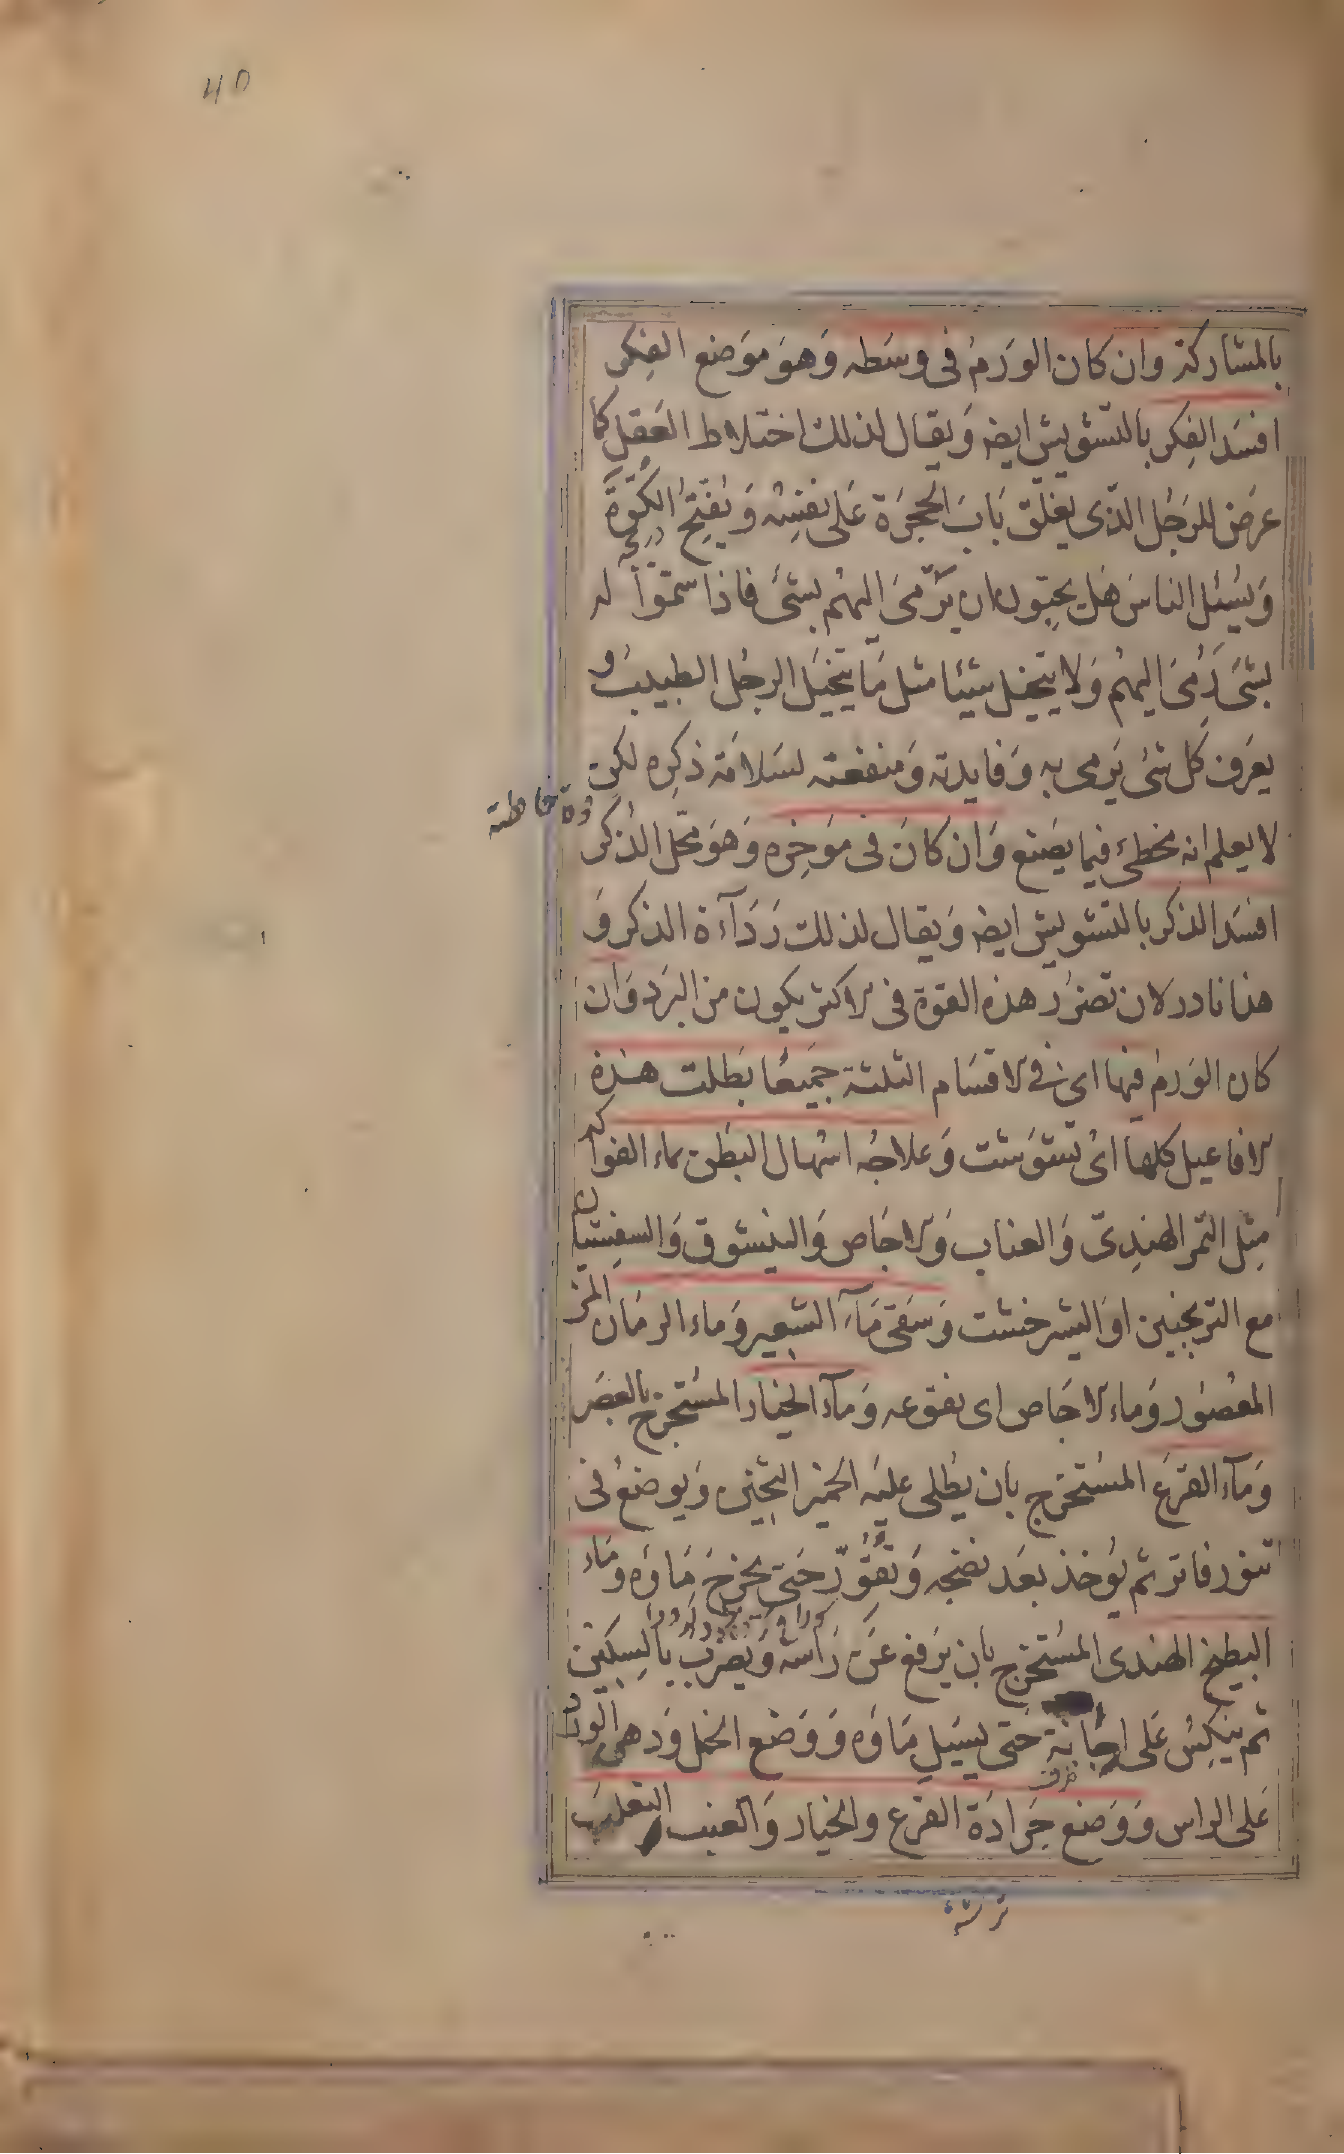 40
بالمشاركة وان كان الورم فى وسطه وهو موضع الفكر
افسد الفكر بالتشويش ايضه ويقال لذلك اختلاط العقل كما
عرض للرجل الذى يغلق باب الحجرة على نفسه ويفتح الكوّة
دريچه
ويسئل الناس هل يحبون ان يرمى اليهم بشئ فاذا سمّوا له
بشئ رمى اليهم ولا يتخيل شيئا مثل ما يتخيل الرجل الطبيب و
يعرف كل شئ يرمى به وفايدته ومنفعته لسلامة ذكره لكن
قوة حافظة
لا يعلم انه مخطئ فيما يصنع وان كان فى موخره وهو محل الذكر
افسد الذكر بالتشويش ايضه ويقال لذلك رداءة الذكر و
هذا نادر لان تضرر هذه القوة فى الاكثر يكون من البرد وان
كان الورم فيها اى فى الاقسام الثلثة جميعا بطلت هذه
الافاعيل كلها اى تشوشت وعلاجه اسهال البطن بماء الفواكه
مثل التمر الهندىّ والعناب والاجاص والنيشوق والسفستان
مع الترنجبين او الشيرخشت وسقى ماء الشعير وماء الرمان المز
المعصور وماء الاجاص اى نقوعه وماء الخيار المستخرج بالعصر
وماء القرع المستخرج بان يطلى عليه الخمير الثخين ويوضع فى
تنور فاتر ثم يوخذ بعد نضجه وتقوّر حتى يخرج ماؤه وماء
البطيخ الهندى المستخرج بان يرفع عن راسه ويضرب بالسكين
ثم ينكس على اجانة حتى يسيل ماؤه ووضع الخل ودهن الورد
ظرف
على الراس ووضع جرادة القرع والخيار والعنب الثعلب
تراشه